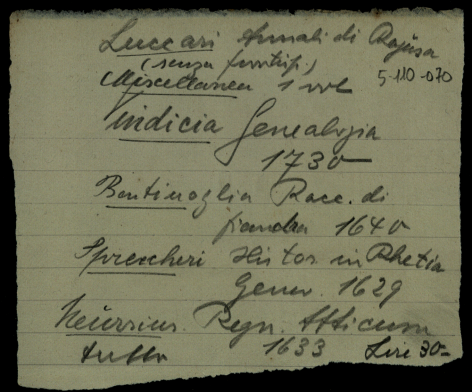 Luccari Annali di Ragusa
(senza frontisp.)
Miscellanea 1 vol
5-110-070
Indicia Genealogia
1730
Bentinoglia Racc. di
fiandra 1640
Sprecheri Histor. in Rhetia
Genev. 1629
Meürsius. Regn. Atticum
tutto 1633 Lire 30=